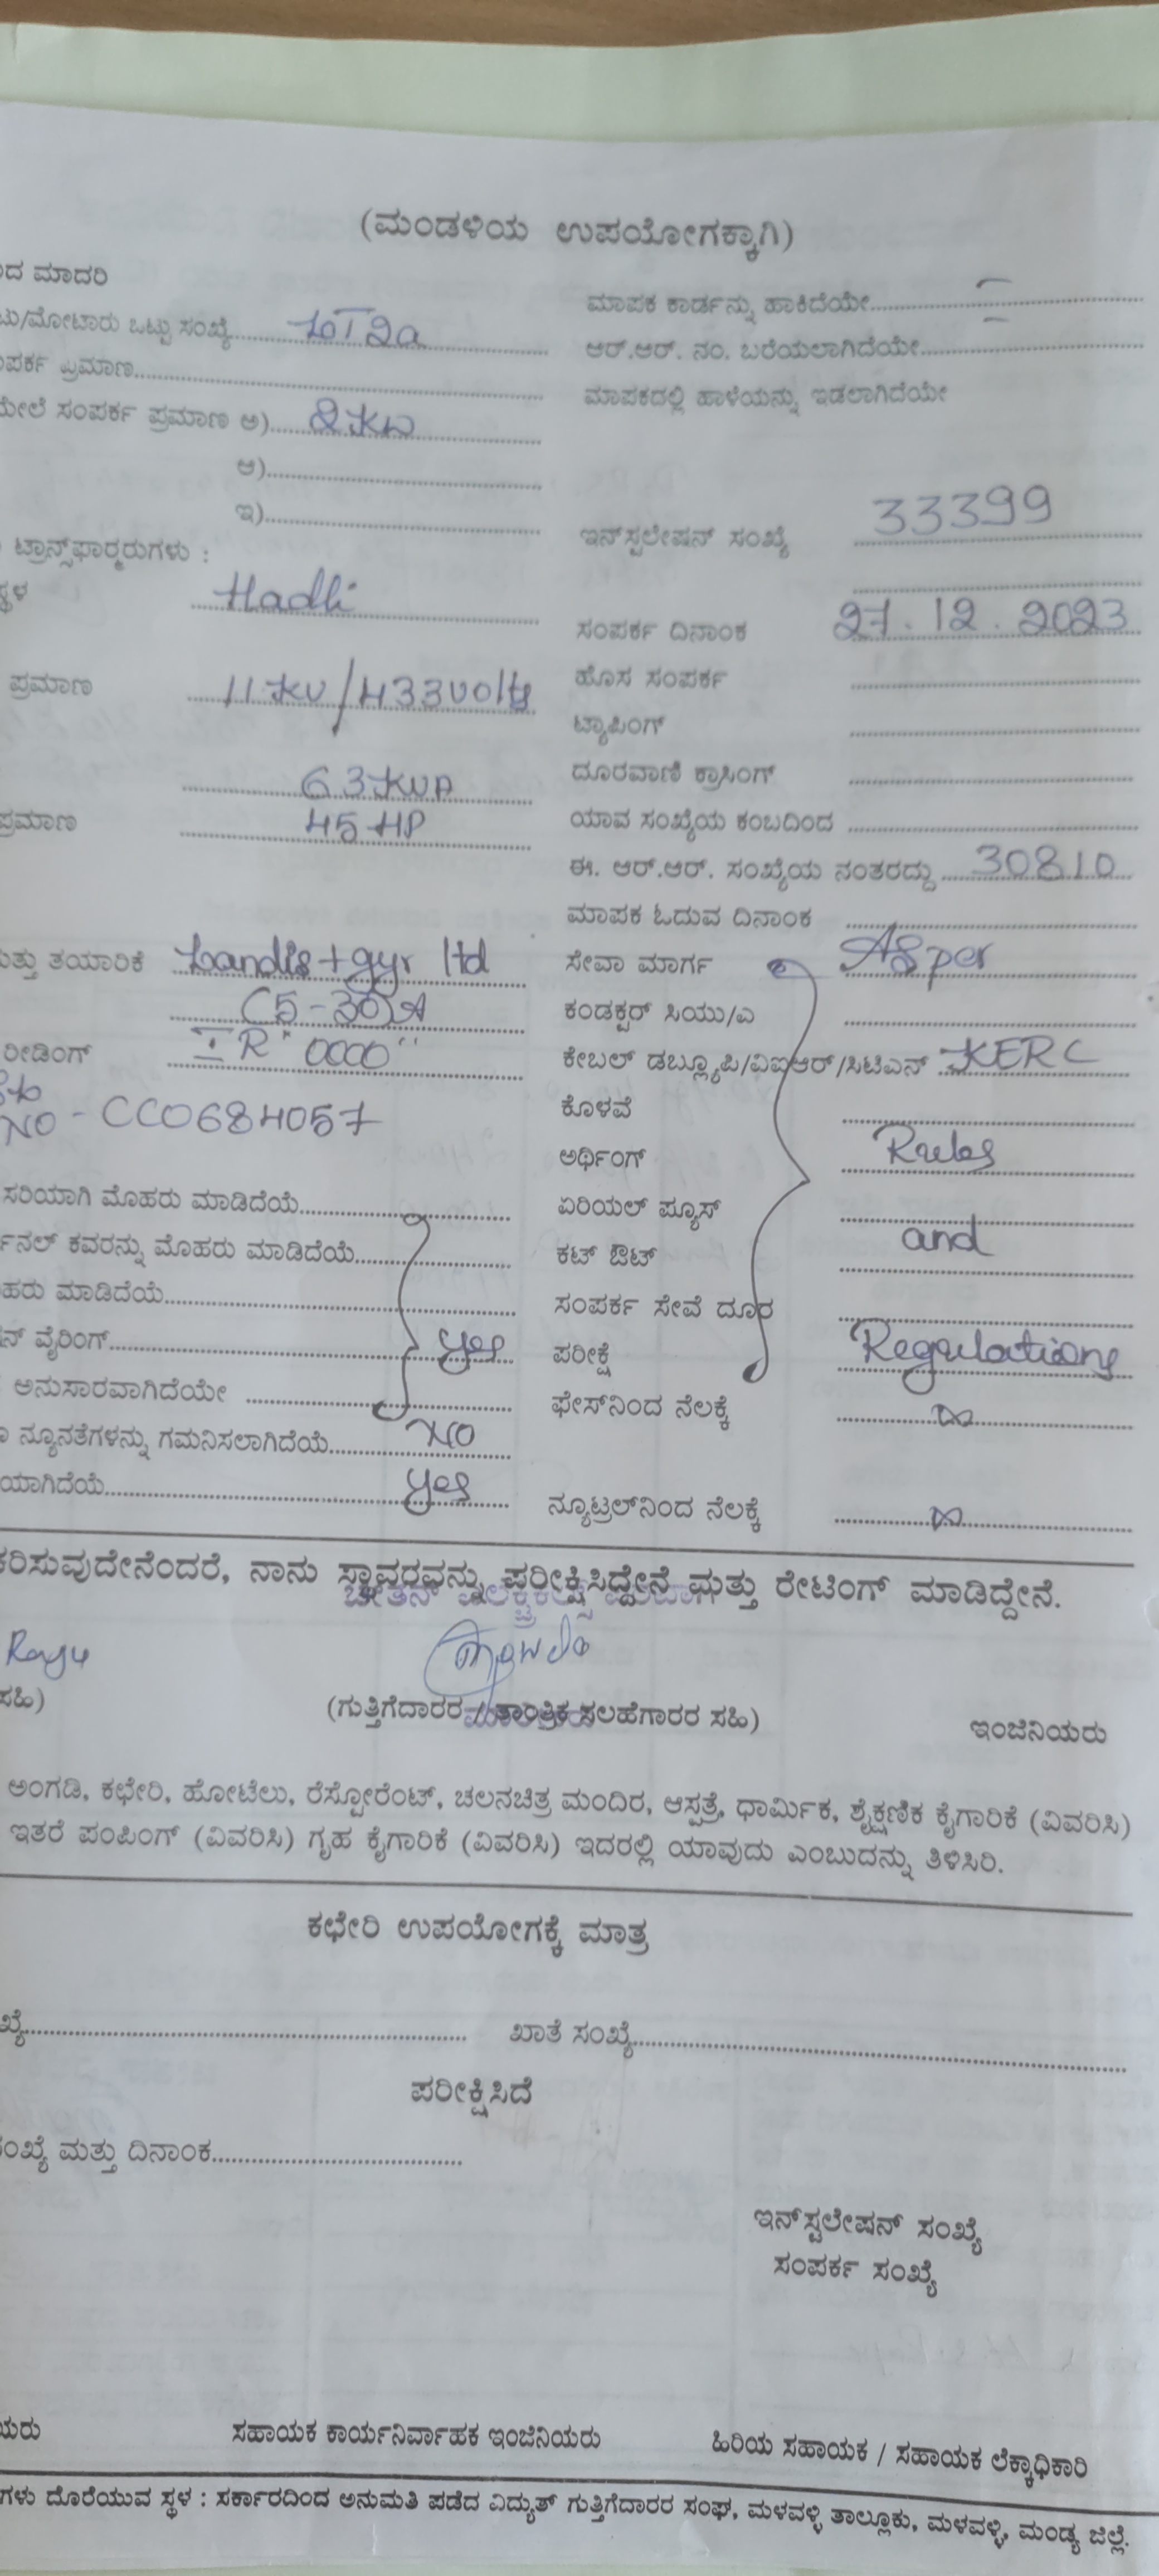 (ಮಂಡಳಿಯ ಉಪಯೋಗಕ್ಕಾಗಿ)
ದ ಮಾದರಿ
ಟು/ಮೋಟಾರು ಒಟ್ಟು ಸಂಖ್ಯೆ
ಪರ್ಕ ಪ್ರಮಾಣ
ಮೇಲೆ ಸಂಪರ್ಕ ಪ್ರಮಾಣ ಅ) 2KW
ಆ)
ಇ)
ಟ್ರಾನ್ಸ್‌ಫಾರ್ಮರುಗಳು :
ಸ್ಥಳ Hadli
ಪ್ರಮಾಣ 11KV/433Volts
63KVA
ಪ್ರಮಾಣ 45 HP
ತ್ತು ತಯಾರಿಕೆ Landis+gyr ltd
C5-30A
ರೀಡಿಂಗ್ IR "0000"
NO - CC0684057
ಸರಿಯಾಗಿ ಮೊಹರು ಮಾಡಿದೆಯೆ
ನಲ್ ಕವರನ್ನು ಮೊಹರು ಮಾಡಿದೆಯೆ
ಹರು ಮಾಡಿದೆಯೆ
ನ್ ವೈರಿಂಗ್ yes
ಅನುಸಾರವಾಗಿದೆಯೇ
ನ್ಯೂನತೆಗಳನ್ನು ಗಮನಿಸಲಾಗಿದೆಯೆ NO
ಯಾಗಿದೆಯೆ yes
ಮಾಪಕ ಕಾರ್ಡನ್ನು ಹಾಕಿದೆಯೇ
ಆರ್.ಆರ್. ನಂ. ಬರೆಯಲಾಗಿದೆಯೇ
ಮಾಪಕದಲ್ಲಿ ಹಾಳೆಯನ್ನು ಇಡಲಾಗಿದೆಯೇ
ಇನ್‌ಸ್ಟಲೇಷನ್ ಸಂಖ್ಯೆ 33399
ಸಂಪರ್ಕ ದಿನಾಂಕ 27.12.2023
ಹೊಸ ಸಂಪರ್ಕ
ಟ್ಯಾಪಿಂಗ್
ದೂರವಾಣಿ ಕ್ರಾಸಿಂಗ್
ಯಾವ ಸಂಖ್ಯೆಯ ಕಂಬದಿಂದ
ಈ. ಆರ್.ಆರ್. ಸಂಖ್ಯೆಯ ನಂತರದ್ದು 30810
ಮಾಪಕ ಓದುವ ದಿನಾಂಕ
ಸೇವಾ ಮಾರ್ಗ As per
ಕಂಡಕ್ಟರ್ ಸಿಯು/ಎ
ಕೇಬಲ್ ಡಬ್ಲ್ಯೂಪಿ/ವಿಐಆರ್/ಸಿಟಿಎನ್ KERC
ಕೊಳವೆ
ಅರ್ಥಿಂಗ್ Rules
ಏರಿಯಲ್ ಪ್ಯೂಸ್
ಕಟ್ ಔಟ್ and
ಸಂಪರ್ಕ ಸೇವೆ ದೂರ
ಪರೀಕ್ಷೆ Regulations
ಫೇಸ್‌ನಿಂದ ನೆಲಕ್ಕೆ ∞
ನ್ಯೂಟ್ರಲ್‌ನಿಂದ ನೆಲಕ್ಕೆ ∞
ಕರಿಸುವುದೇನೆಂದರೆ, ನಾನು ಸ್ಥಾವರವನ್ನು ಪರೀಕ್ಷಿಸಿದ್ದೇನೆ ಮತ್ತು ರೇಟಿಂಗ್ ಮಾಡಿದ್ದೇನೆ.
ಸಹಿ) (ಗುತ್ತಿಗೆದಾರರ / ತಾಂತ್ರಿಕ ಸಲಹೆಗಾರರ ಸಹಿ) ಇಂಜಿನಿಯರು
ಅಂಗಡಿ, ಕಛೇರಿ, ಹೋಟೆಲು, ರೆಸ್ಟೋರೆಂಟ್, ಚಲನಚಿತ್ರ ಮಂದಿರ, ಆಸ್ಪತ್ರೆ, ಧಾರ್ಮಿಕ, ಶೈಕ್ಷಣಿಕ ಕೈಗಾರಿಕೆ (ವಿವರಿಸಿ)
ಇತರೆ ಪಂಪಿಂಗ್ (ವಿವರಿಸಿ) ಗೃಹ ಕೈಗಾರಿಕೆ (ವಿವರಿಸಿ) ಇದರಲ್ಲಿ ಯಾವುದು ಎಂಬುದನ್ನು ತಿಳಿಸಿರಿ.
ಕಛೇರಿ ಉಪಯೋಗಕ್ಕೆ ಮಾತ್ರ
ಖ್ಯೆ ಖಾತೆ ಸಂಖ್ಯೆ
ಪರೀಕ್ಷಿಸಿದೆ
ಂಖ್ಯೆ ಮತ್ತು ದಿನಾಂಕ
ಇನ್‌ಸ್ಟಲೇಷನ್ ಸಂಖ್ಯೆ
ಸಂಪರ್ಕ ಸಂಖ್ಯೆ
ಯರು ಸಹಾಯಕ ಕಾರ್ಯನಿರ್ವಾಹಕ ಇಂಜಿನಿಯರು ಹಿರಿಯ ಸಹಾಯಕ / ಸಹಾಯಕ ಲೆಕ್ಕಾಧಿಕಾರಿ
ಗಳು ದೊರೆಯುವ ಸ್ಥಳ : ಸರ್ಕಾರದಿಂದ ಅನುಮತಿ ಪಡೆದ ವಿದ್ಯುತ್ ಗುತ್ತಿಗೆದಾರರ ಸಂಘ, ಮಳವಳ್ಳಿ ತಾಲ್ಲೂಕು, ಮಳವಳ್ಳಿ, ಮಂಡ್ಯ ಜಿಲ್ಲೆ.